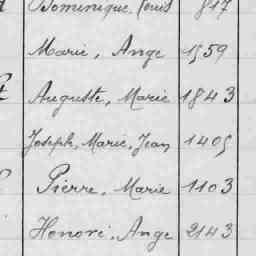 Dominique Louis 817
Marie, Ange 1559
Auguste, Marie 1843
Joseph, Marie, Jean 1405
Pierre, Marie 1103
Honoré, Ange 2143